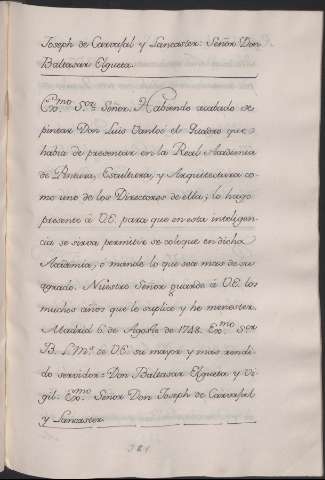 Joseph de Carvajal y Lancaster: Señor Don
Baltasar Elgueta.
Exᵐᵒ Sᵒʳ Señor. Habiendo acabado de
pintar Don Luis Vanlos el Quadro que
habia de presentar en la Real Academia
de Pintura, Escultura, y Arquitectura co-
mo uno de los Directores de ella; lo hago
presente à V.E. para que en esta inteligen-
cia se sirva permitir se coloque en dicha
Academia, ò mande lo que sea mas de su
agrado. Nuestro Señor guarde à V.E. los
muchos años que le suplico y he menester.
Madrid 6 de Agosto de 1748. Exᵐᵒ Sᵒʳ
B. L. Mˢ de V.E. su mayor y mas rendi-
do servidor: Don Baltasar Elgueta y Vi-
gil: Exᵐᵒ Señor Don Joseph de Carvajal
y Lancaster.